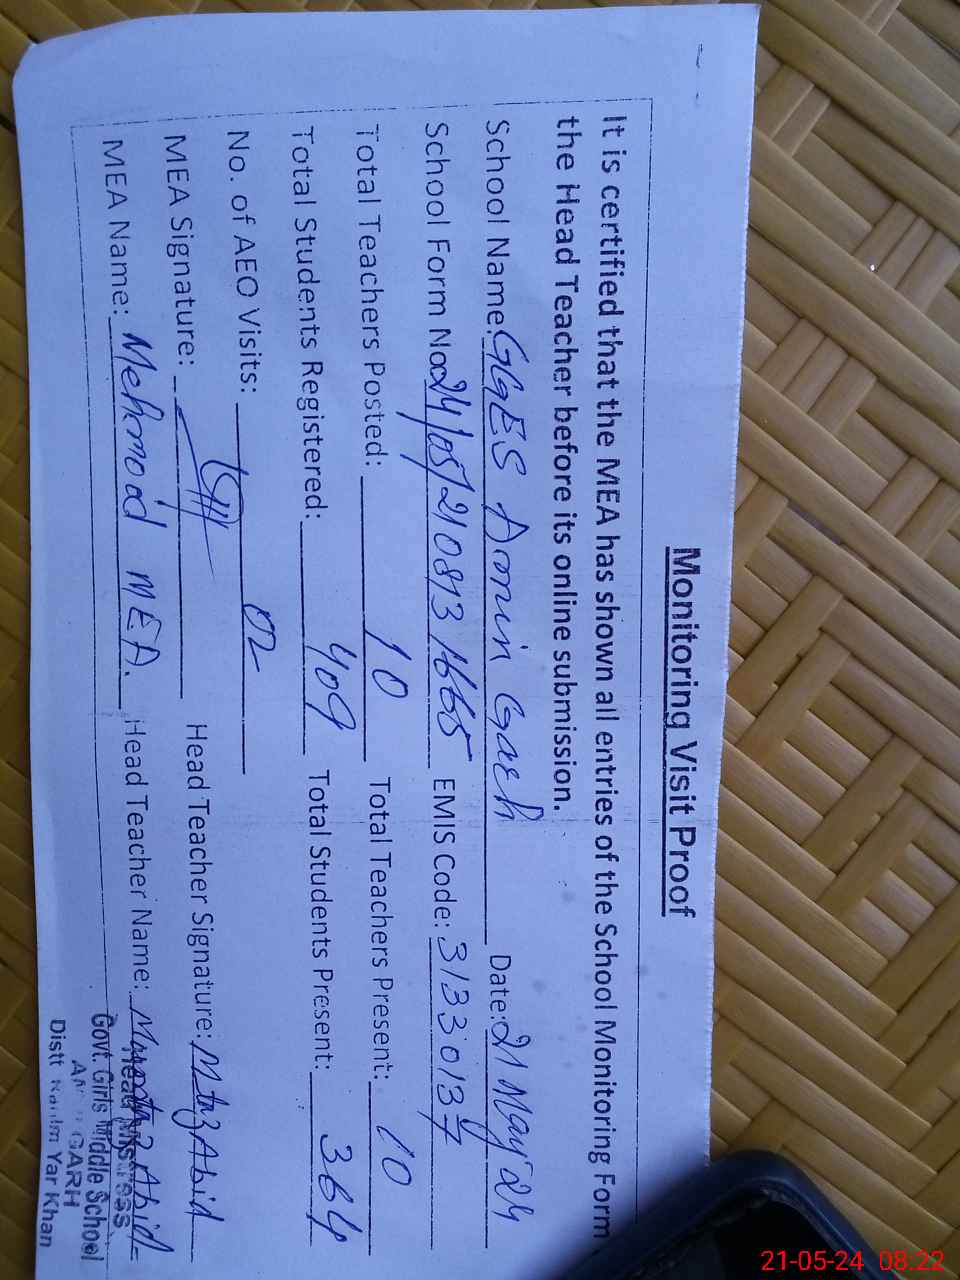 Monitoring Visit Proof
It is certified that the MEA has shown all entries of the School Monitoring Form
the Head Teacher before its online submission.
School Name: GGES Amin Garh Date: 21 May 24
School Form No: EMIS Code: 31330137
Total Teachers Posted: 10 Total Teachers Present: 10
Total Students Registered: 409 Total Students Present: 364
No. of AEO Visits: 02
MEA Signature: Head Teacher Signature: Abid
MEA Name: Mehmood MEA. Head Teacher Name: Abid
Head Mistress
Govt. Girls Middle School
GARH
Distt Yar Khan
21-05-24 08:22